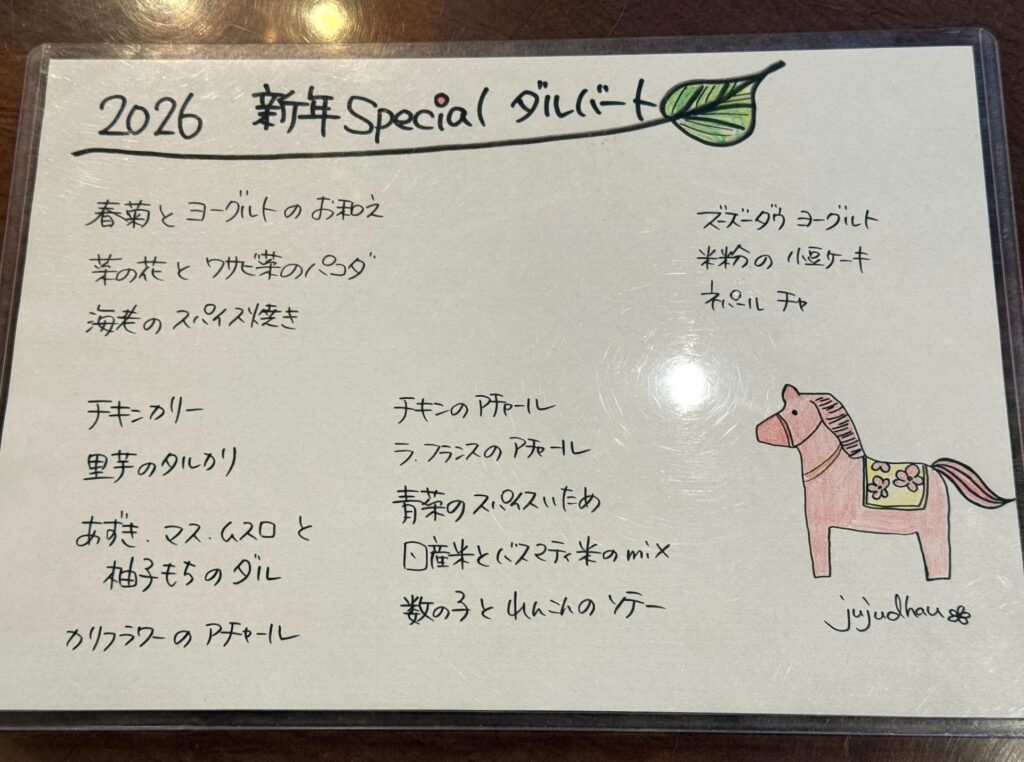 2026 新年Special ダルバート
春菊とヨーグルトのお和え
菜の花とワサビ菜のパコダ
海老のスパイス焼き
ズーズーダウ ヨーグルト
米粉の小豆ケーキ
ネパール チヤ
チキンカリー
里芋のタルカリ
あずき、マス、ムスロと
柚子もちのダル
カリフラワーのアチャール
チキンのアチャール
ラ・フランスのアチャール
青菜のスパイスいため
国産米とバスマティ米のmix
数の子とれんこんのソテー
jujudhau